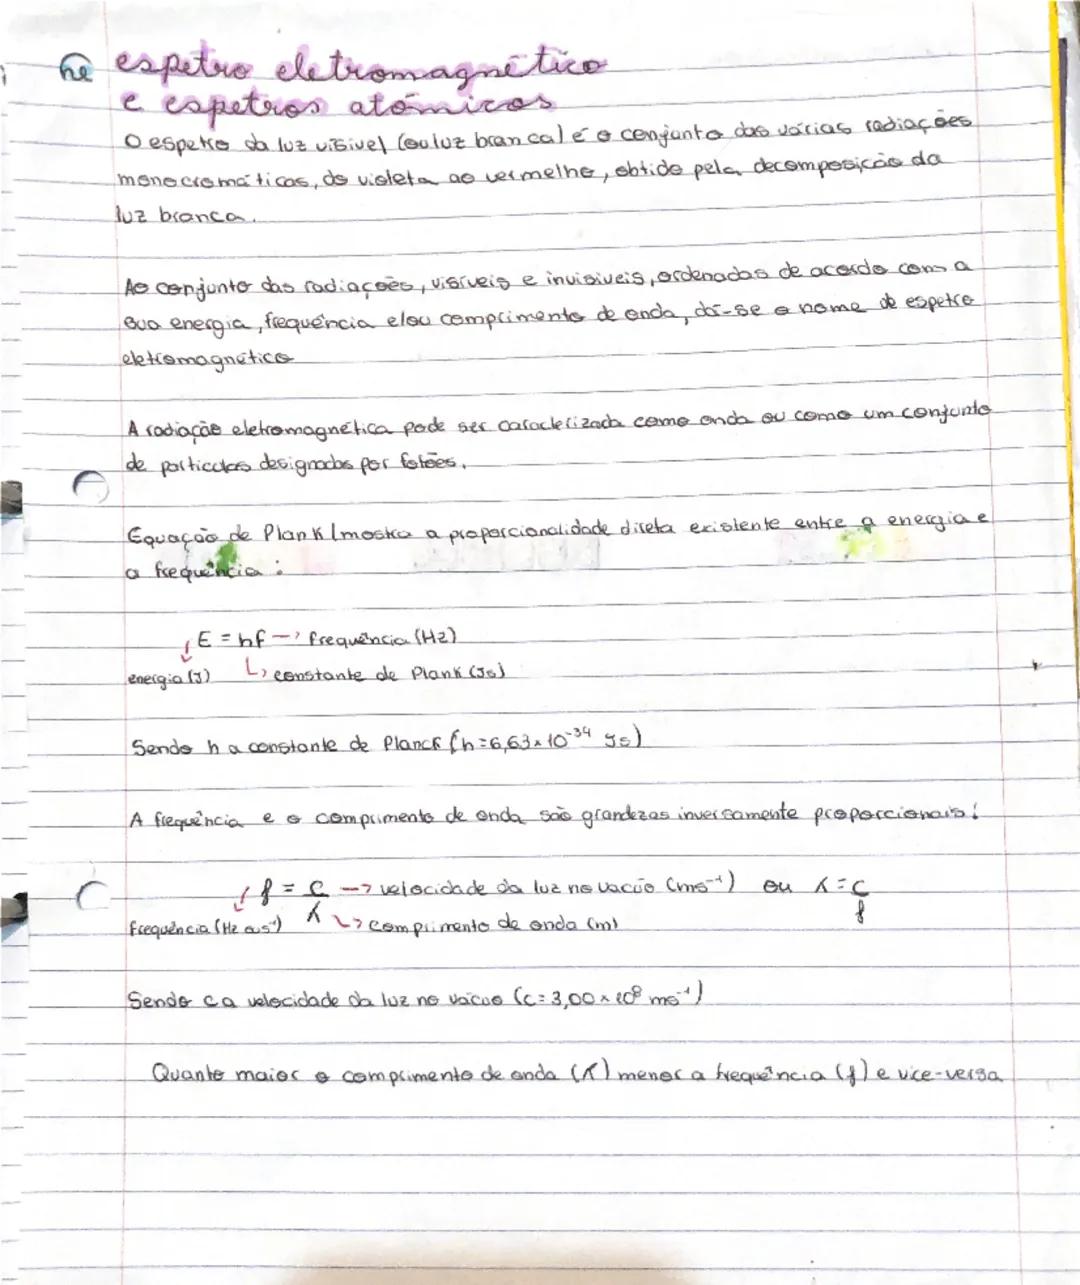 he espetro eletromagnético
e espetros atómicos
O espetro da luz visível (ou luz branca) é o conjunto das várias radiações
monocromáticas, do violeta ao vermelho, obtido pela decomposição da
luz branca.
Ao conjunto das radiações, visíveis e invisíveis, ordenadas de acordo com a
sua energia, frequência e/ou comprimento de onda, dá-se o nome de espetro
eletromagnético
A radiação eletromagnética pode ser caracterizada como onda ou como um conjunto
de partículas designadas por fotões.
Equação de Plank (mostra a proporcionalidade direta existente entre a energia e
a frequência:
E = hf → frequência (Hz)
energia (J) ↳ constante de Plank (Js)
Sendo h a constante de Planck (h=6,63×10⁻³⁴ Js)
A frequência e o comprimento de onda são grandezas inversamente proporcionais!
f = c → velocidade da luz no vácuo (ms⁻¹) ou λ = c
frequência (Hz ou s⁻¹) λ ↳ comprimento de onda (m) f
Sendo c a velocidade da luz no vácuo (c=3,00×10⁸ ms⁻¹)
Quanto maior o comprimento de onda (λ) menor a frequência (f) e vice-versa